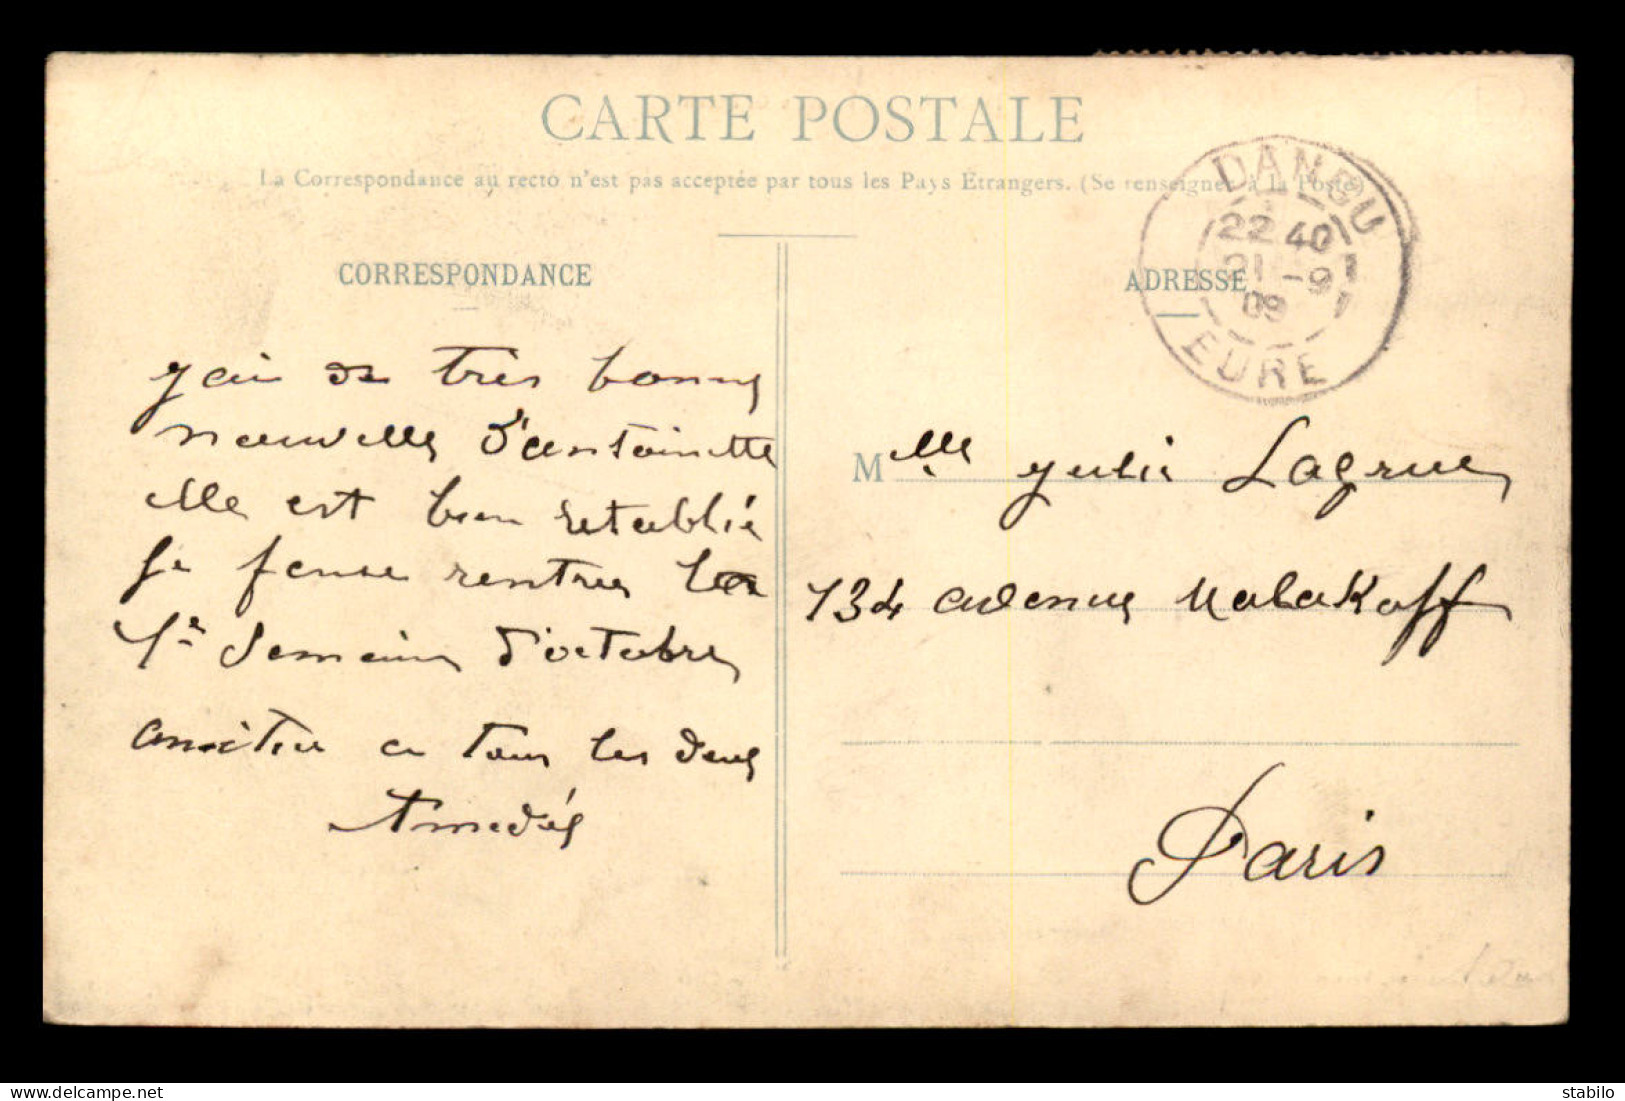 CARTE POSTALE
La Correspondance au recto n'est pas acceptée par tous les Pays Etrangers. (Se renseigner à la Poste)
CORRESPONDANCE
j'ai de très bonnes
nouvelles d'antoinette
elle est bien retablie
je pense rentrer la
1re Semaine d'octobre
amitiés a tous les deux
Amedée
DANGU
22 40
21 -9
09
EURE
ADRESSE
Mlle julie Lagrue
134 avenue Malakoff
Paris
stabilo